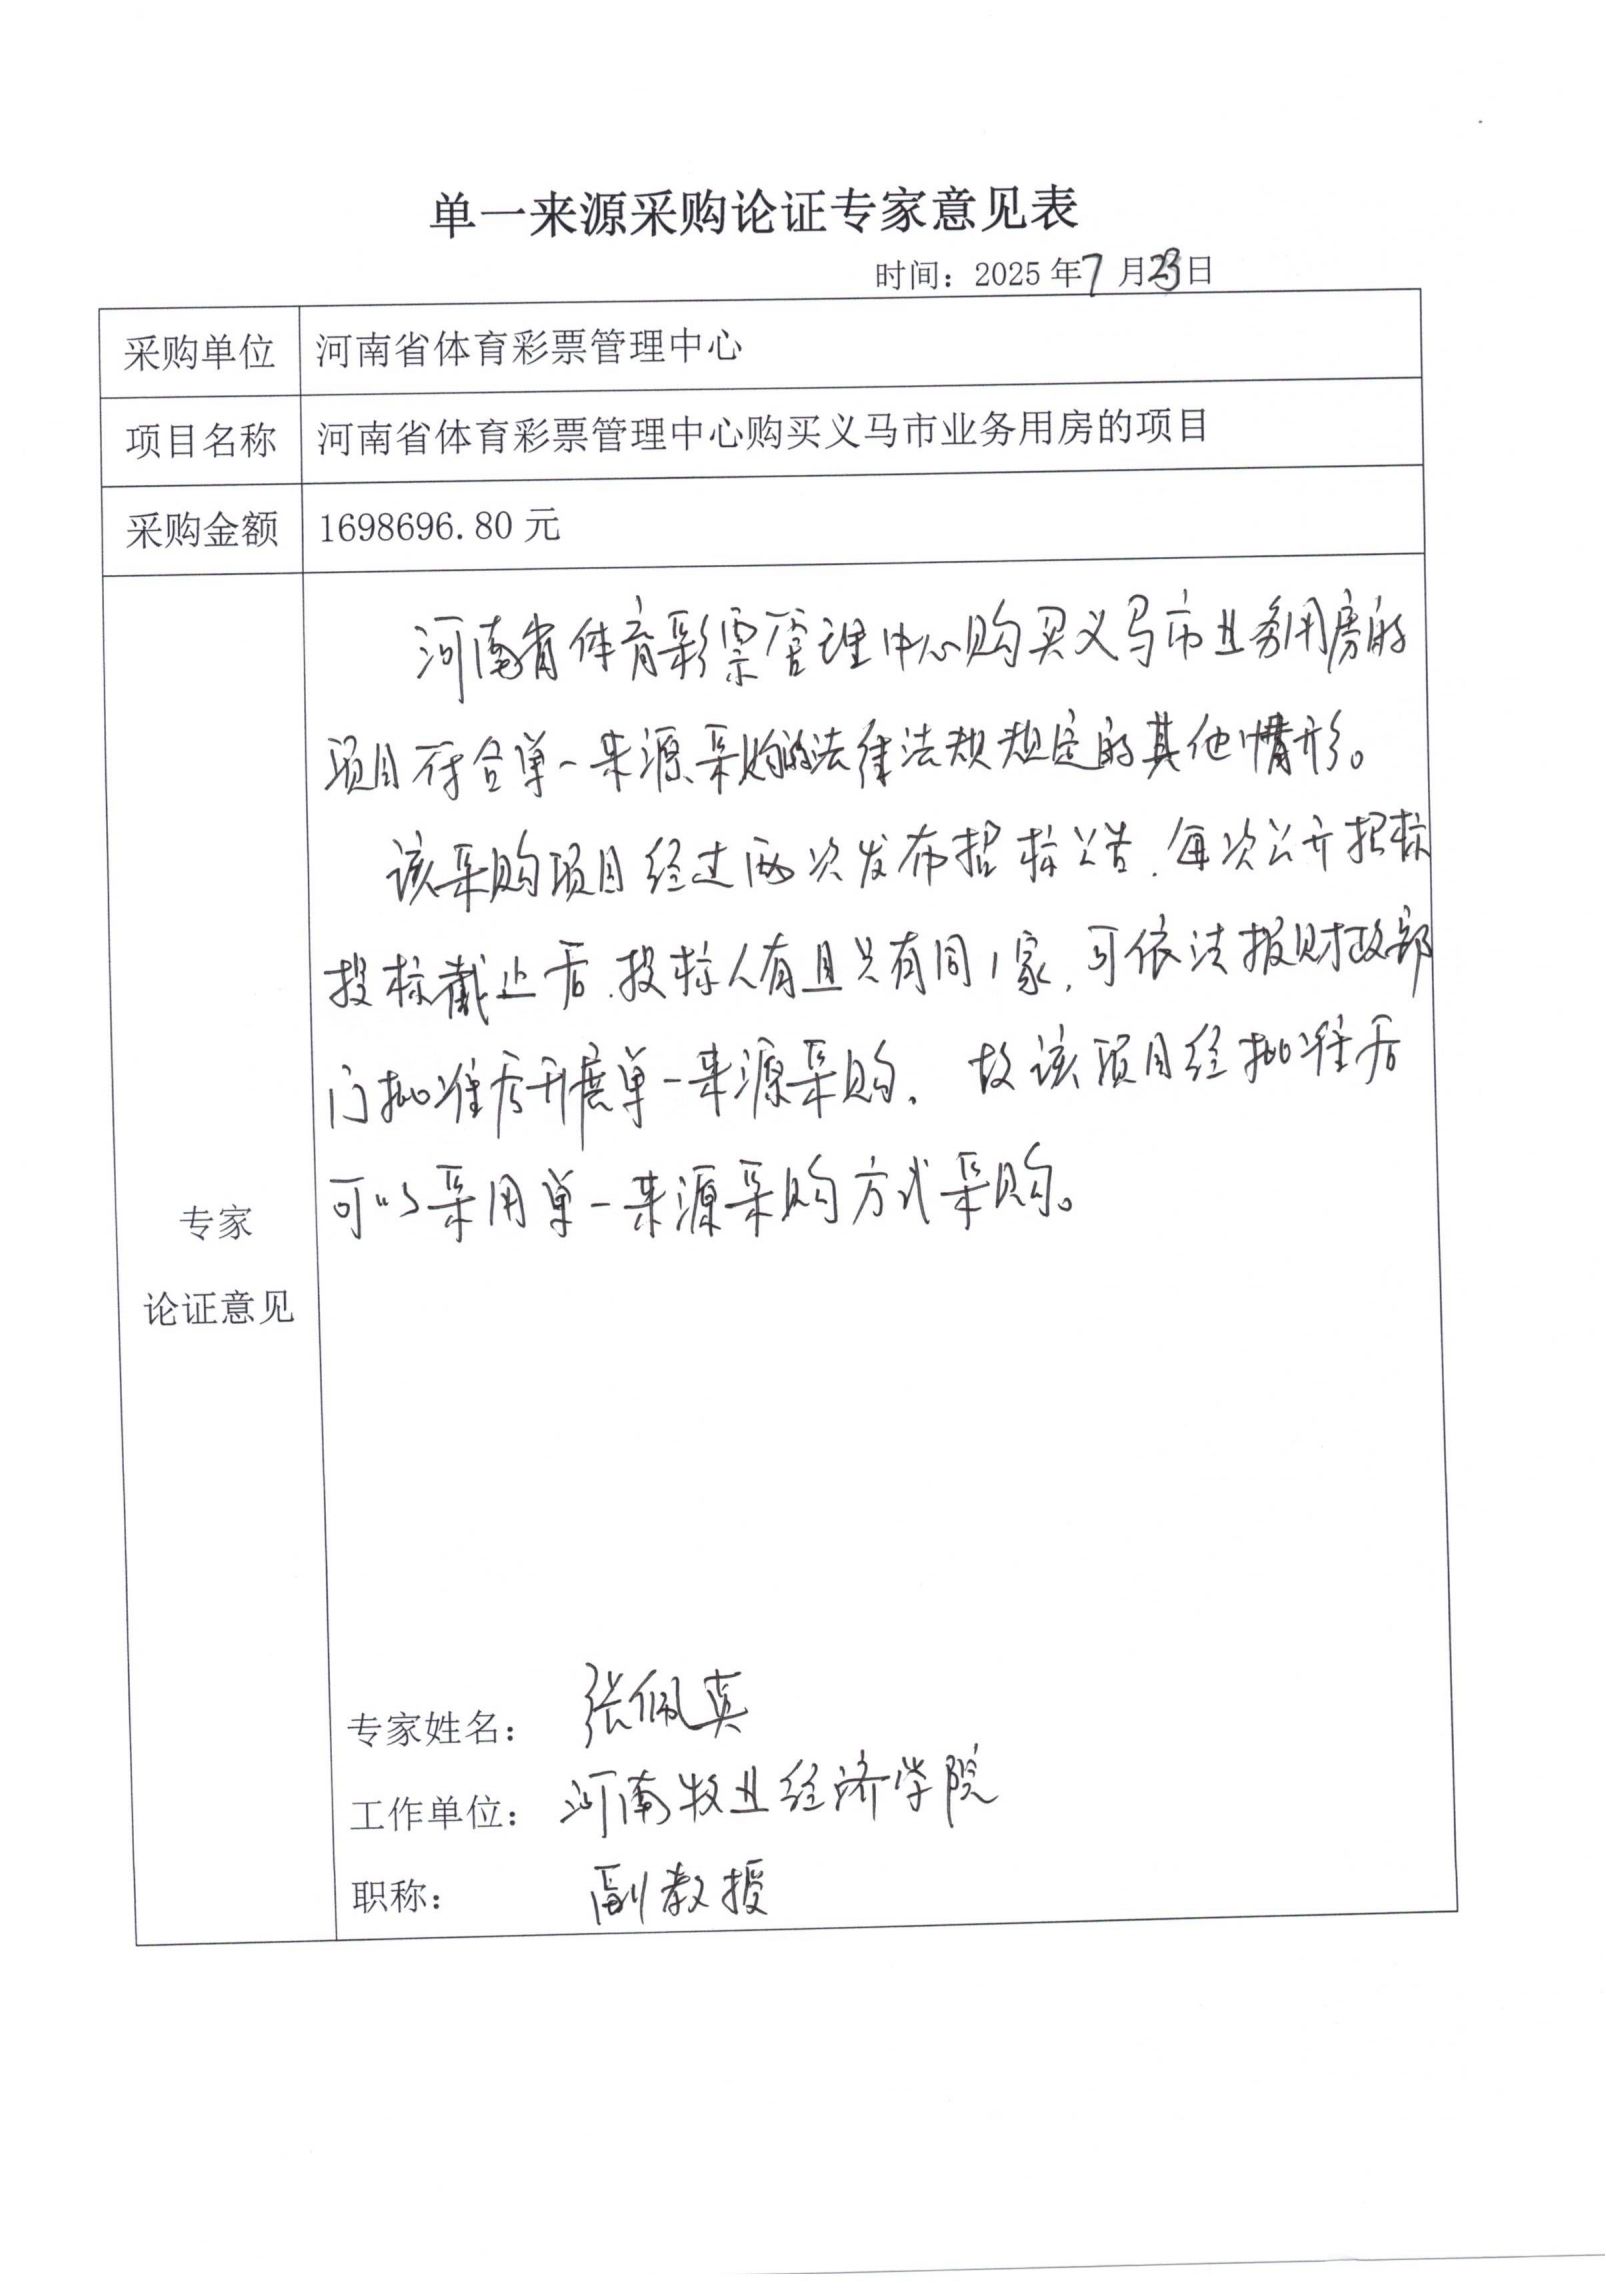 单一来源采购论证专家意见表
时间：2025年7月23日
采购单位 河南省体育彩票管理中心
项目名称 河南省体育彩票管理中心购买义马市业务用房的项目
采购金额 1698696.80元
专家
论证意见
河南省体育彩票管理中心购买义马市业务用房的
项目符合单一来源采购的法律法规规定的其他情形。
该采购项目经过两次发布招标公告，每次公开招标
投标截止后，投标人有且只有同1家，可依法报财政部
门批准后开展单一来源采购。故该项目经批准后
可以采用单一来源采购方式采购。
专家姓名：张佩真
工作单位：河南牧业经济学院
职称：副教授